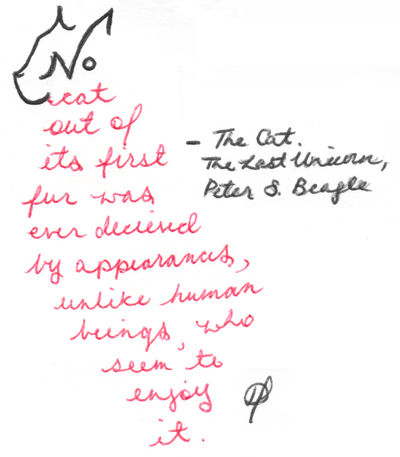 No
cat
out of
its first
fur was
ever decieved
by appearances,
unlike human
beings, who
seem to
enjoy
it.
- The Cat.
The Last Unicorn,
Peter S. Beagle